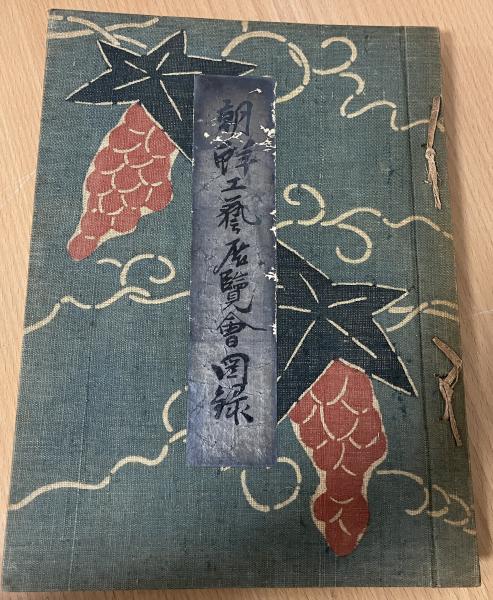 朝鮮工藝展覽會圖録